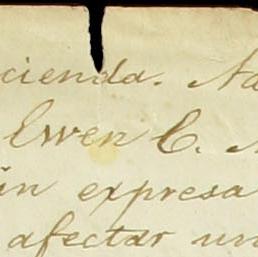 cienda. Na
Ewen C. M
ún expresa
afectar un